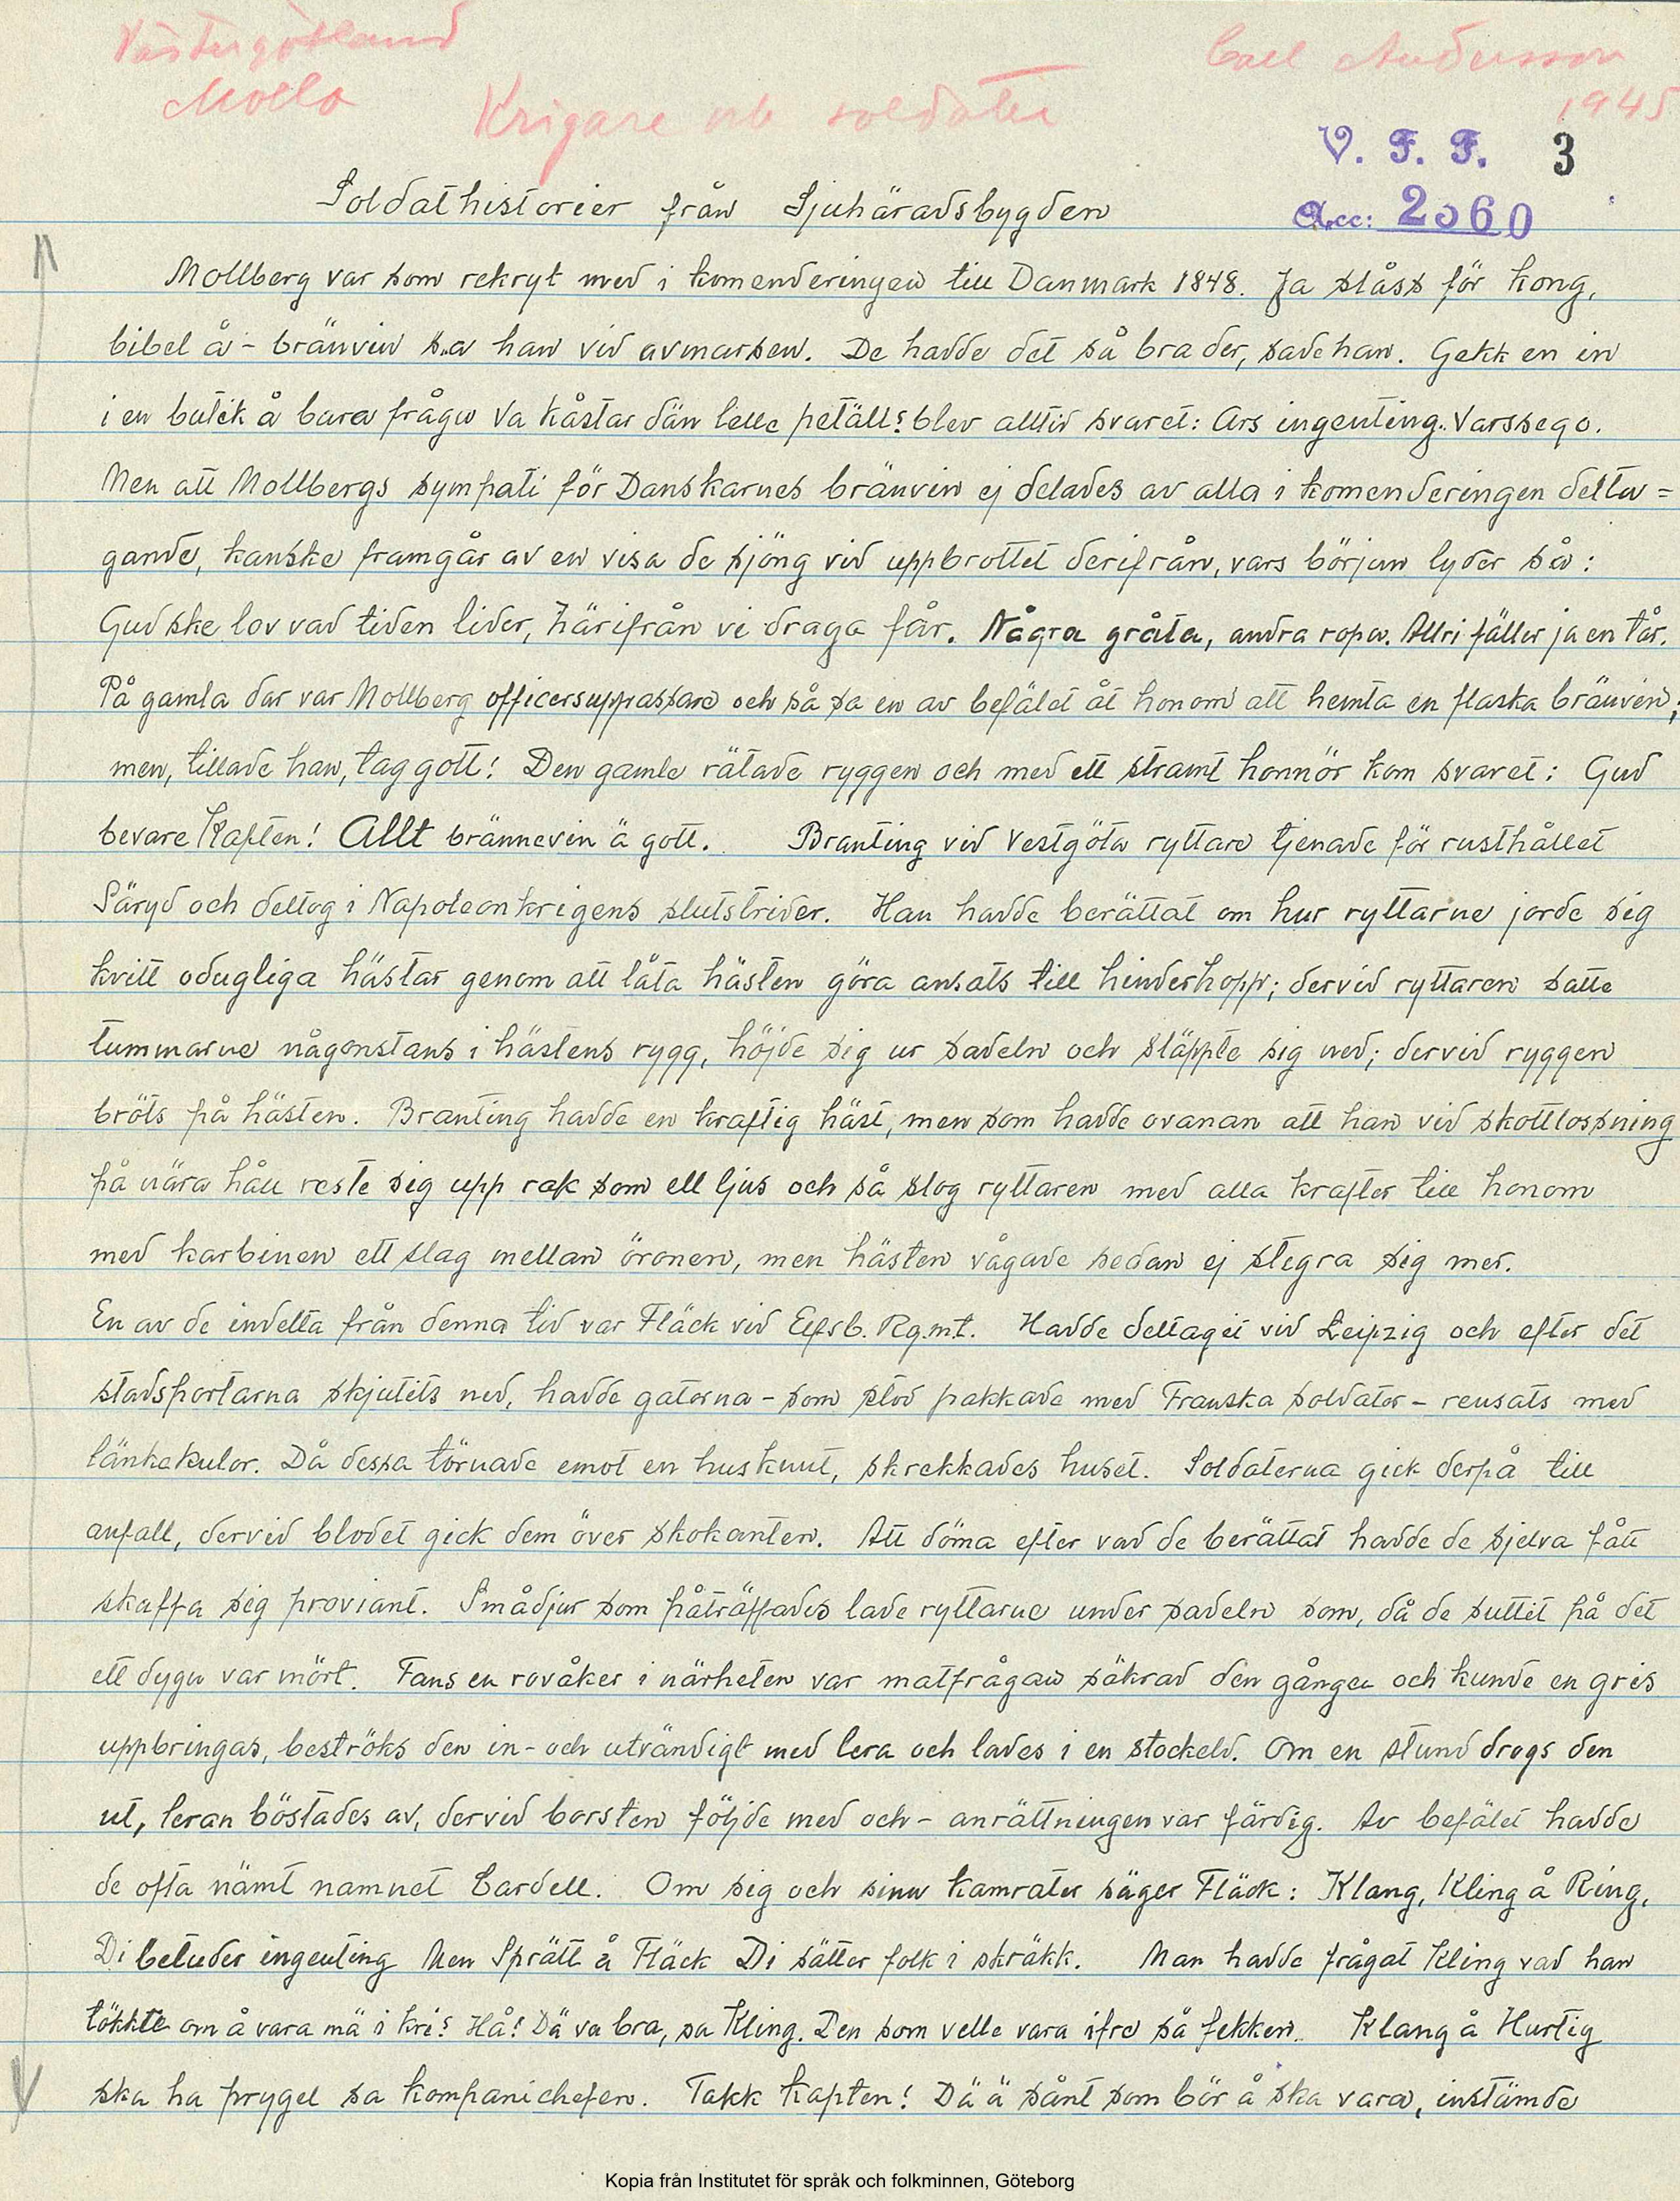 Västergötland
Molla
Carl Andersson
1945
Krigare och soldater
V. F. F. 3
Acc: 2560
Soldathistorier från Sjuhäradsbygden
Mollberg var som rekryt med i komenderingen till Danmark 1848. Ja slåss för kong,
bibel å - bränvin sa han vid avmarsen. De hadde det så bra der, sade han. Gekk en in
i en butik å bara frågu va kåstar dän lelle petäll? blev alltid svaret: Ars ingenting. Varssego.
Men att Mollbergs sympati för Danskarnes bränvin ej delades av alla i komenderingen delta=
gande, kanske framgår av en visa de sjöng vid uppbrottet derifrån, vars början lyder så:
Gudske lov vad tiden lider, härifrån vi draga får. Några gråta, andra ropa. Allri fäller ja en tår.
På gamla dar var Mollberg officersuppassare och så sa en av befälet åt honom att hemta en flaska bränvin;
men, tillade han, tag gott! Den gamle rätade ryggen och med ett stramt honnör kom svaret: Gud
bevare Kapten! Allt brännevin ä gott. Branting vid Vestgöta ryttare tjenade för rusthållet
Säryd och deltog i Napoleonkrigens slutstrider. Han hadde berättat om hur ryttarne jorde sig
kvitt odugliga hästar genom att låta hästen göra ansats till hinderhopp; dervid ryttaren satte
tummarne någonstans i hästens rygg, höjde sig ur sadeln och släppte sig ned; dervid ryggen
bröts på hästen. Branting hadde en kraftig häst, men som hadde ovanan att han vid skottlossning
på nära håll reste sig upp rak som ett ljus och så slog ryttaren med alla krafter till honom
med karbinen ett slag mellan öronen, men hästen vågade sedan ej stegra sig mer.
En av de indelta från denna tid var Fläck vid Elfsb. Rg.mt. Hadde deltagit vid Leipzig och efter det
stadsportarna skjutits ned, hadde gatorna - som stod pakkade med Franska soldater - rensats med
länkekulor. Då dessa törnade emot en husknut, skrekkades huset. Soldaterna gick derpå till
anfall, dervid blodet gick dem över skokanten. Att döma efter vad de berättat hadde de sjelva fått
skaffa sig proviant. Smådjur som påträffades lade ryttarne under sadeln som, då de suttit på det
ett dygn var mört. Fans en rovåker i närheten var matfrågan säkrad den gången och kunde en gris
uppbringas, beströks den in- och utvändigt med lera och lades i en stockeld. Om en stund drogs den
ut, leran böstades av, dervid borsten följde med och - anrättningen var färdig. Av befälet hadde
de ofta nämt namnet Cardell. Om sig och sina kamrater säger Fläck: Klang, Kling å Ring,
Di betuder ingenting Men Sprätt å Fläck Di sätter folk i skräkk. Man hadde frågat Kling vad han
tökkte om å vara mä i kri? Hå! Dä va bra, sa Kling. Den som velle vara ifre så fekken. Klang å Hurtig
ska ha prygel sa kompanichefen. Takk kapten! Dä ä sånt som bör å ska vara, instämde
Kopia från Institutet för språk och folkminnen, Göteborg